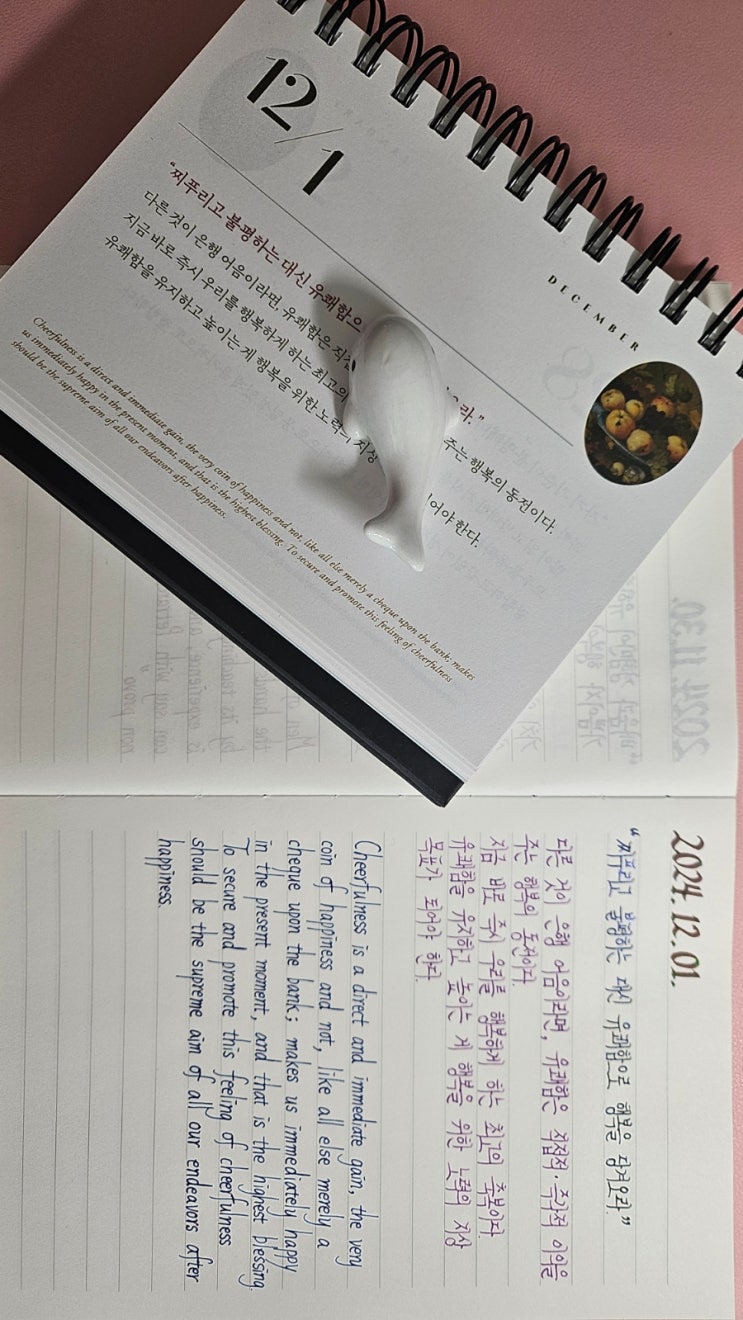 12/1
DECEMBER
"찌푸리고 불평하는 대신 유쾌함으 라."
다른 것이 은행 어음이라면, 유쾌함은 직접 주는 행복의 동전이다.
지금 바로 즉시 우리를 행복하게 하는 최고의
유쾌함을 유지하고 높이는 게 행복을 위한 노력의 지상 어야 한다.
Cheerfulness is a direct and immediate gain, the very coin of happiness and not, like all else merely a cheque upon the bank; makes
us immediately happy in the present moment, and that is the highest blessing. To secure and promote this feeling of cheerfulness
should be the supreme aim of all our endeavors after happiness.
2024.12.01.
"찌푸리고 불평하는 대신 유쾌함으로 행복을 당겨오라."
다른 것이 은행 어음이라면, 유쾌함은 직접적·즉각적 이익을
주는 행복의 동전이다.
지금 바로 즉시 우리를 행복하게 하는 최고의 축복이다.
유쾌함을 유지하고 높이는 게 행복을 위한 노력의 지상
목표가 되어야 한다.
Cheerfulness is a direct and immediate gain, the very
coin of happiness and not, like all else merely a
cheque upon the bank; makes us immediately happy
in the present moment, and that is the highest blessing.
To secure and promote this feeling of cheerfulness
should be the supreme aim of all our endeavors after
happiness.
2024.11.30.